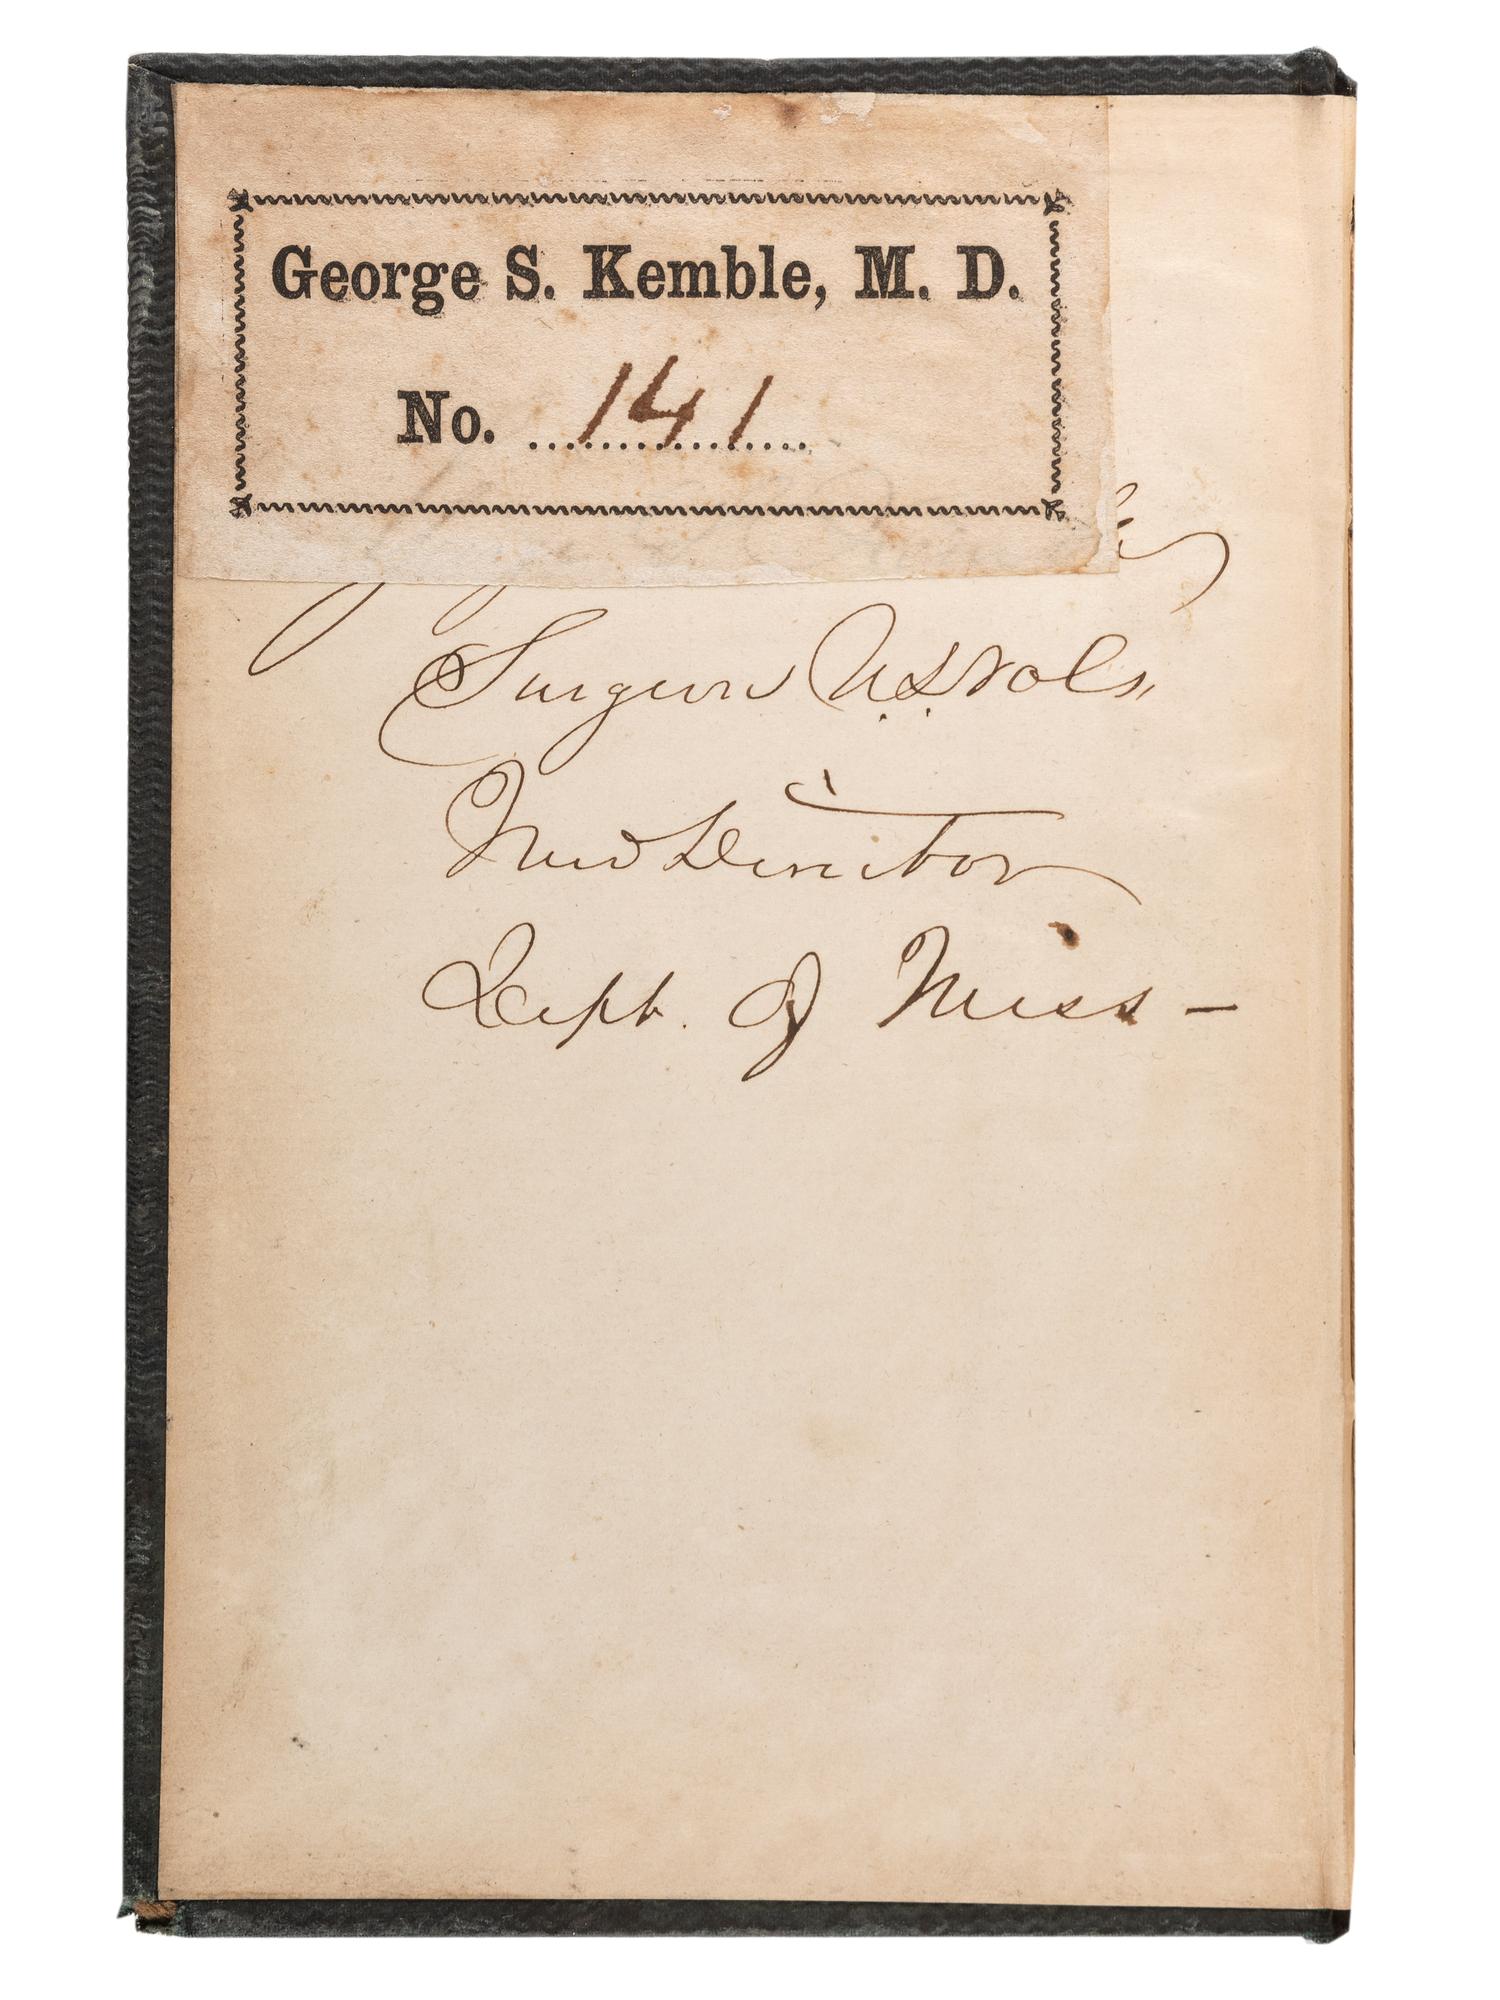 George S. Kemble, M. D.
No. 141
Surgeon U.S. Vols,
Med Director
Dept. of Miss—